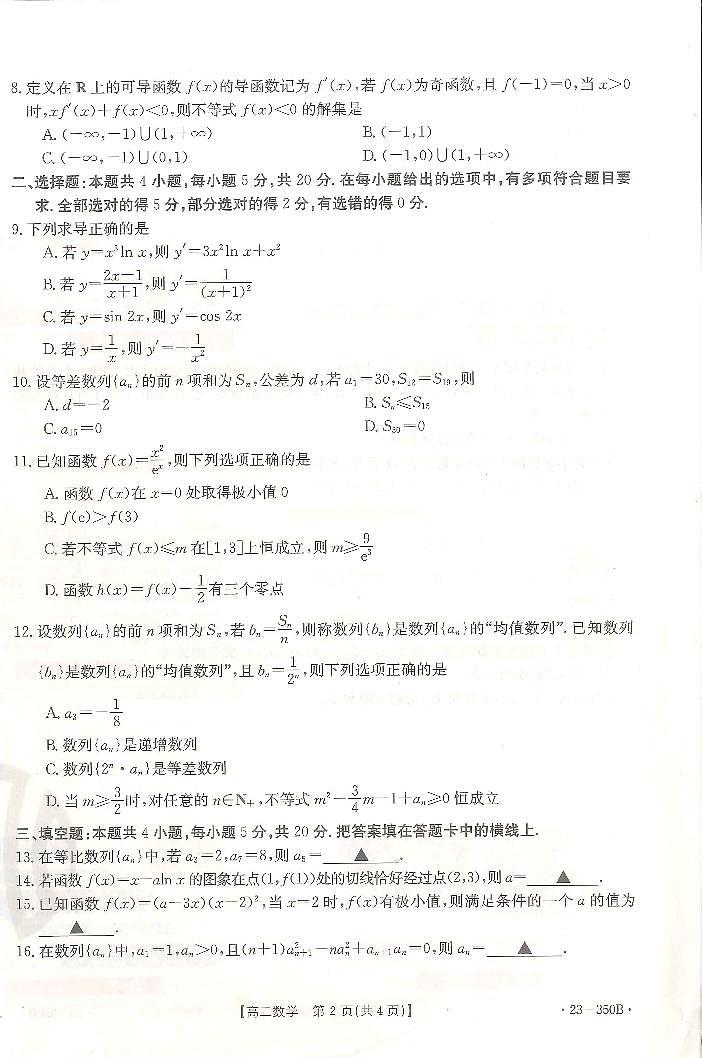 8. 定义在 R 上的可导函数 f(x)的导函数记为 f′(x),若 f(x)为奇函数,且 f(−1)=0,当 x>0
时,xf′(x)+f(x)<0,则不等式 f(x)<0 的解集是
A. (−∞,−1)∪(1,+∞) B. (−1,1)
C. (−∞,−1)∪(0,1) D. (−1,0)∪(1,+∞)
二、选择题:本题共 4 小题,每小题 5 分,共 20 分. 在每小题给出的选项中,有多项符合题目要
求. 全部选对的得 5 分,部分选对的得 2 分,有选错的得 0 分.
9. 下列求导正确的是
A. 若 y=x³ln x,则 y′=3x²ln x+x²
B. 若 y=(2x−1)/(x+1),则 y′=1/(x+1)²
C. 若 y=sin 2x,则 y′=cos 2x
D. 若 y=1/x,则 y′=−1/x²
10. 设等差数列{aₙ}的前 n 项和为 Sₙ,公差为 d,若 a₁=30,S₁₂=S₁₉,则
A. d=−2 B. Sₙ≤S₁₅
C. a₁₅=0 D. S₃₀=0
11. 已知函数 f(x)=x²/eˣ,则下列选项正确的是
A. 函数 f(x)在 x=0 处取得极小值 0
B. f(e)>f(3)
C. 若不等式 f(x)≤m 在[1,3]上恒成立,则 m≥9/e³
D. 函数 h(x)=f(x)−1/2有三个零点
12. 设数列{aₙ}的前 n 项和为 Sₙ,若 bₙ=Sₙ/n,则称数列{bₙ}是数列{aₙ}的“均值数列”. 已知数列
{bₙ}是数列{aₙ}的“均值数列”,且 bₙ=1/2ⁿ,则下列选项正确的是
A. a₃=−1/8
B. 数列{aₙ}是递增数列
C. 数列{2ⁿ·aₙ}是等差数列
D. 当 m≥3/2时,对任意的 n∈N₊,不等式 m²−3/4m−1+aₙ≥0 恒成立
三、填空题:本题共 4 小题,每小题 5 分,共 20 分. 把答案填在答题卡中的横线上.
13. 在等比数列{aₙ}中,若 a₃=2,a₇=8,则 a₅= ▲ .
14. 若函数 f(x)=x−aln x 的图象在点(1,f(1))处的切线恰好经过点(2,3),则 a= ▲ .
15. 已知函数 f(x)=(a−3x)(x−2)²,当 x=2 时,f(x)有极小值,则满足条件的一个 a 的值为
▲ .
16. 在数列{aₙ}中,a₁=1,aₙ>0,且(n+1)a²ₙ₊₁−na²ₙ+aₙ₊₁aₙ=0,则 aₙ= ▲ .
【高二数学 第 2 页(共 4 页)】 ·23−350B·